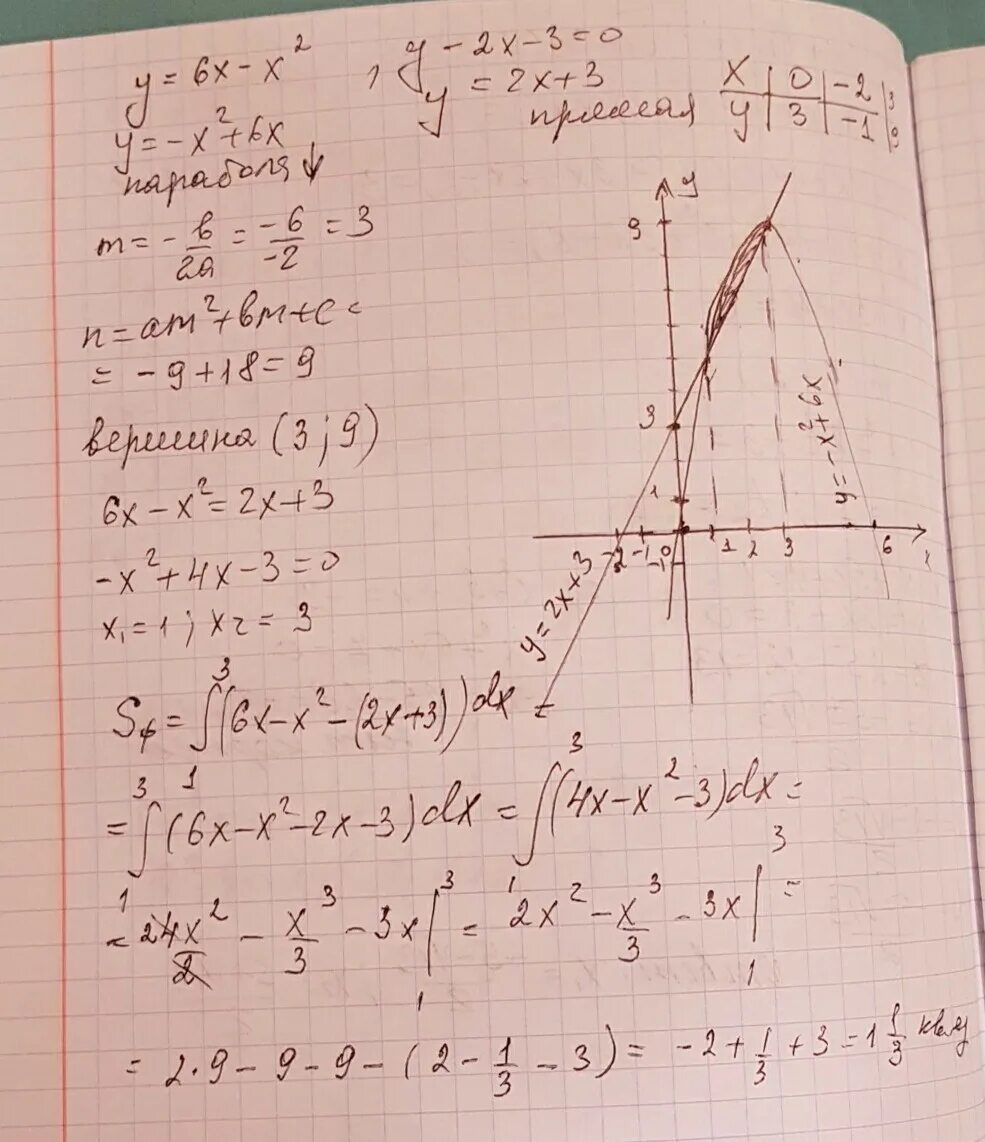 y = 6x - x²
y = -x² + 6x
парабола ↓
m = -в/2a = -6/-2 = 3
n = am² + вm + c =
= -9 + 18 = 9
вершина (3; 9)
6x - x² = 2x + 3
-x² + 4x - 3 = 0
x₁ = 1; x₂ = 3
, y - 2x - 3 = 0
y = 2x + 3
прямая
x | 0 | -2 | 3
y | 3 | -1 | 9
y
9
3
1
-2 -1 0 1 2 3 6 x
-1
y = 2x + 3
y = -x² + 6x
Sф = ∫₁³ (6x - x² - (2x + 3)) dx =
= ∫₁³ (6x - x² - 2x - 3) dx = ∫₁³ (4x - x² - 3) dx =
= 24x²/2 - x³/3 - 3x |₁³ = 2x² - x³/3 - 3x |₁³ =
= 2·9 - 9 - 9 - (2 - 1/3 - 3) = -2 + 1/3 + 3 = 1 1/3 кв.ед